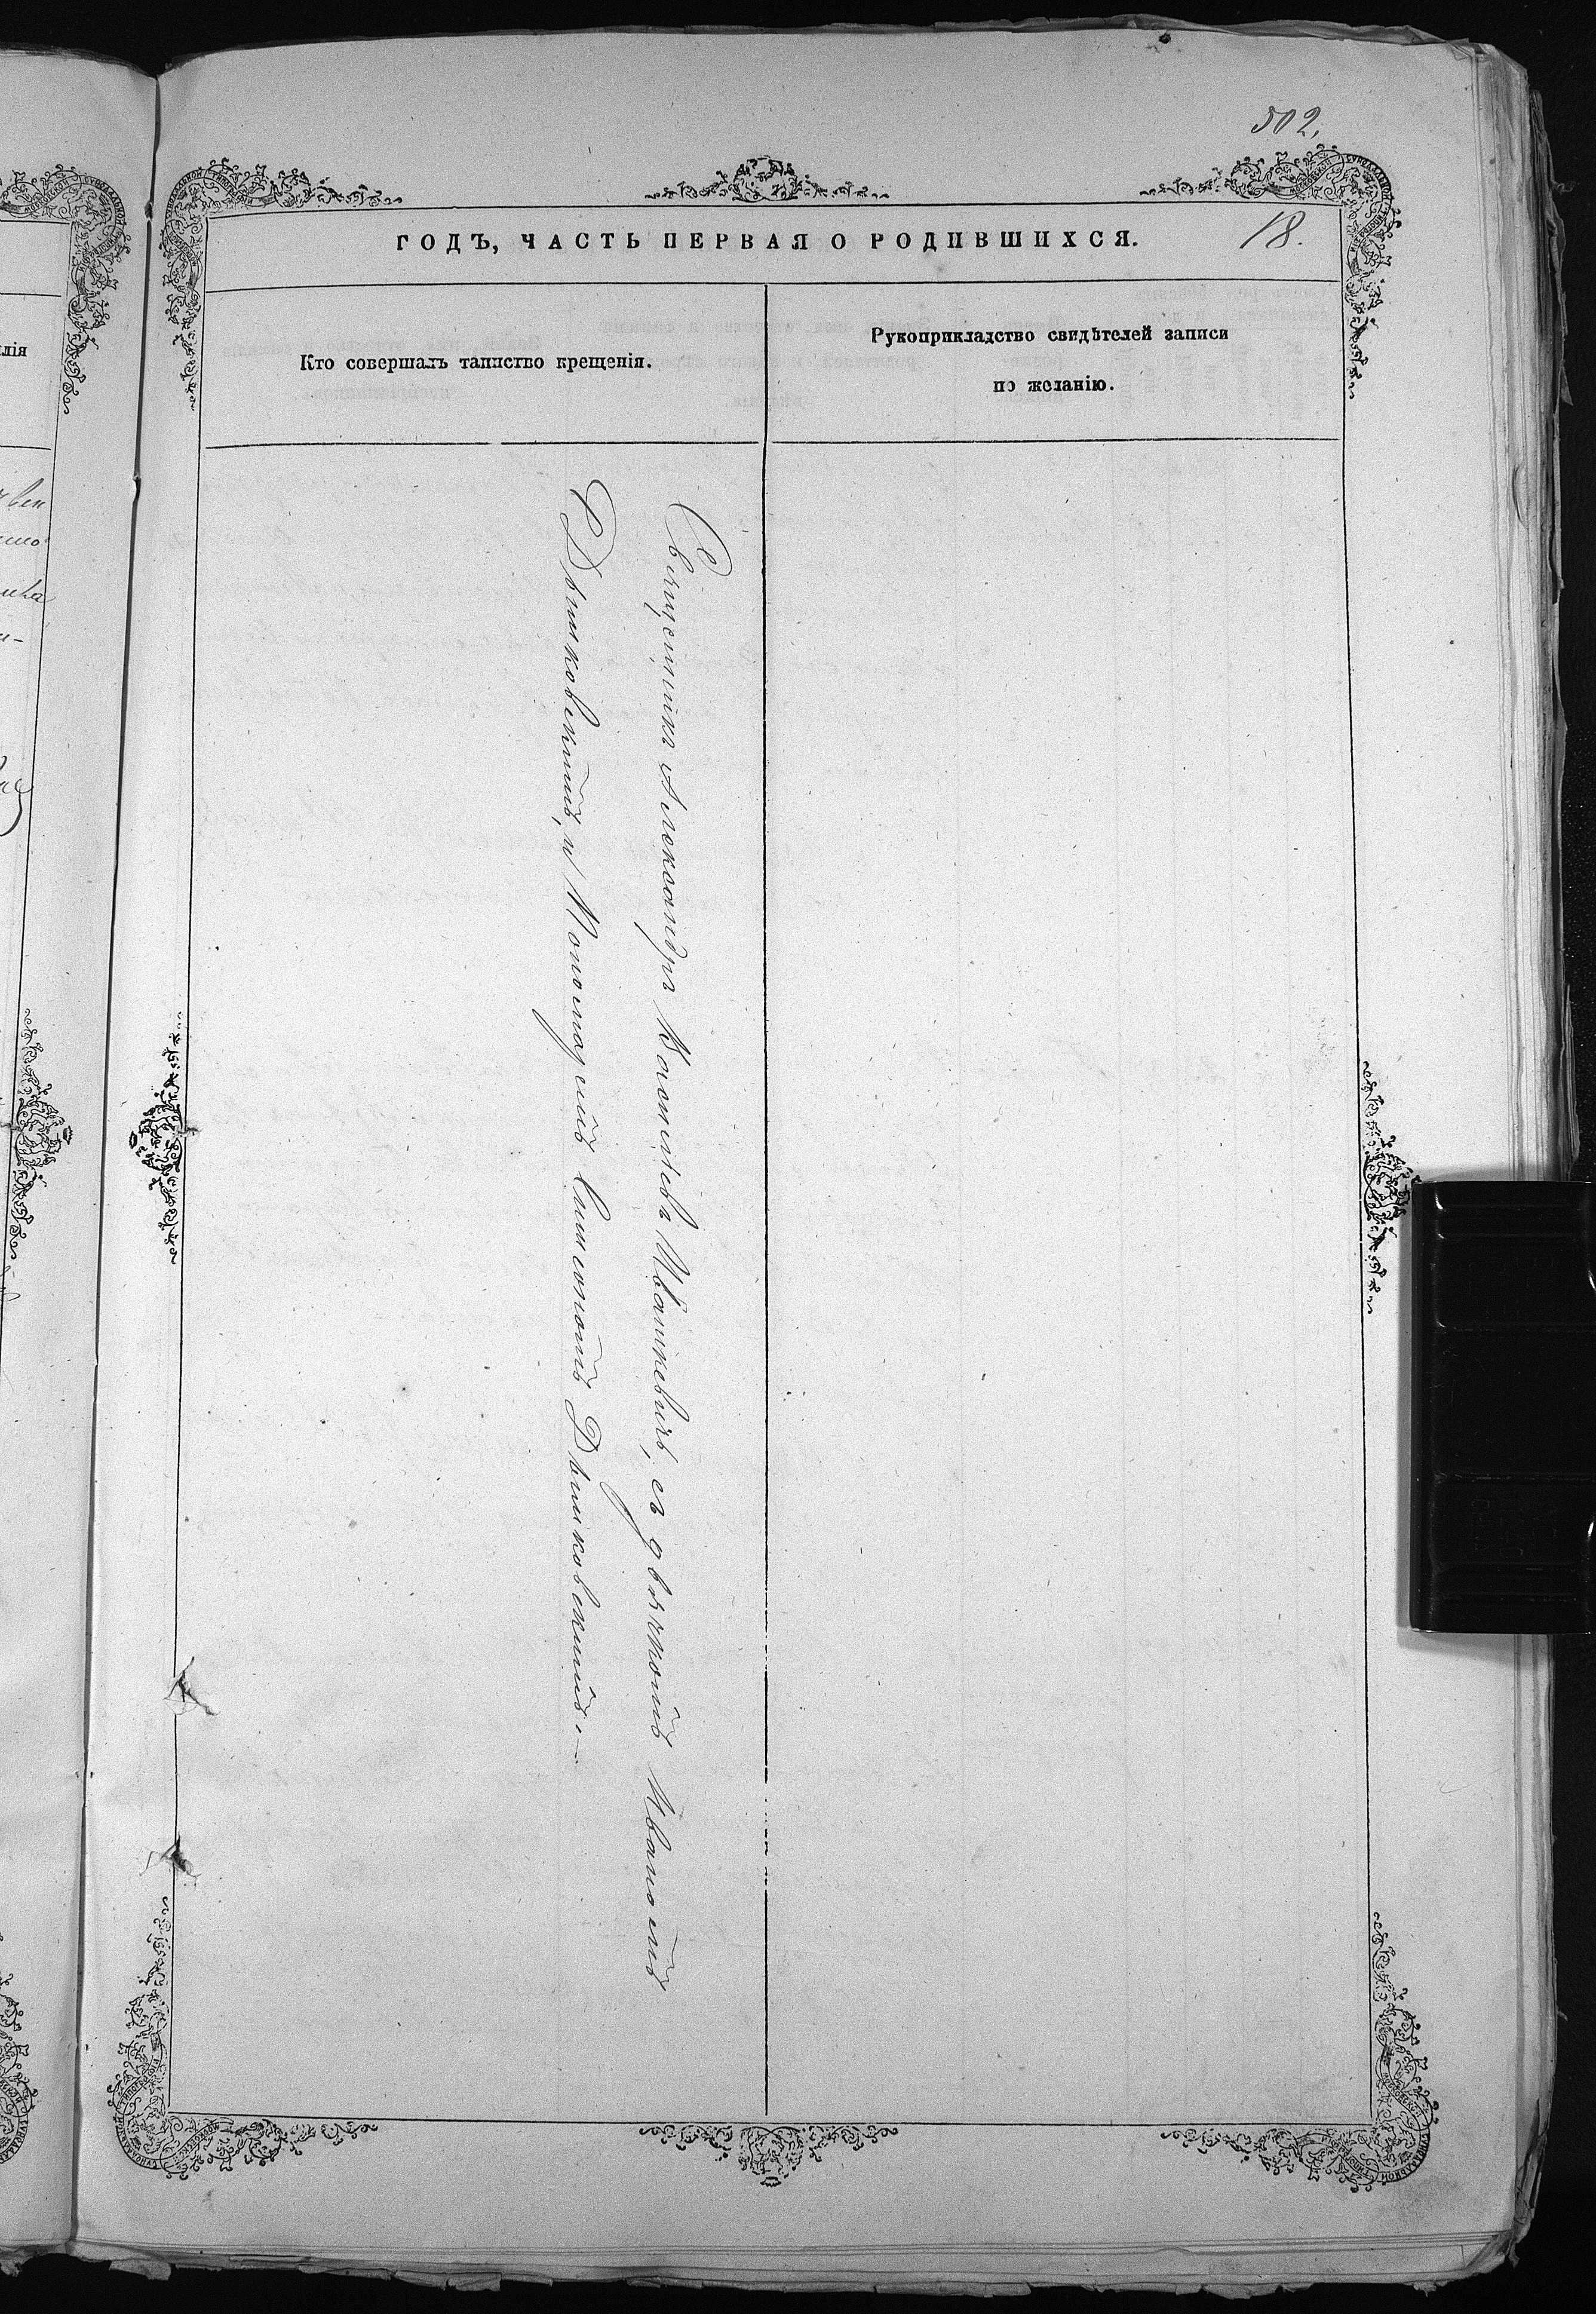 502.
ГОДЪ, ЧАСТЬ ПЕРВАЯ О РОДИВШИХСЯ.
18.
Кто совершалъ таинство крещенія.
Рукоприкладство свидѣтелей записи
по желанію.
Священникъ Александръ Игнатьевъ Ивашкевичъ, съ дьячкомъ Иваномъ
Дымковскимъ, и Пономаремъ Симеономъ Дымковскимъ.—
лія